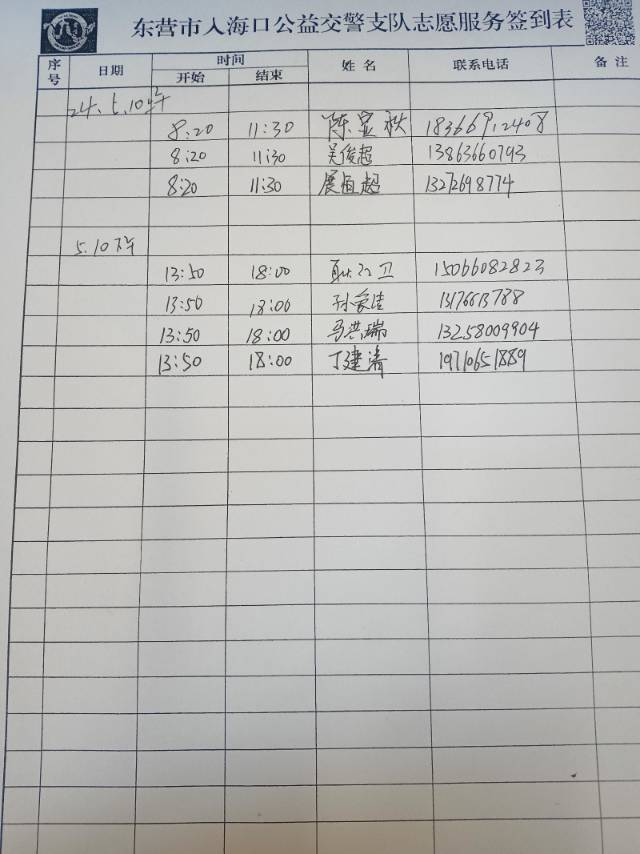 东营市入海口公益交警支队志愿服务签到表
序号 日期 时间 姓名 联系电话 备注
开始 结束
24.5.10上午
8:20 11:30 陈显秋
8:20 11:30 吴俊超 13863660793
8:20 11:30 展恒超 13272698774
5.10下午
13:50 18:00 15066082823
13:50 18:00 孙蒙佳
13:50 18:00 马洪瑞 13258009904
13:50 18:00 丁建清 19710651889